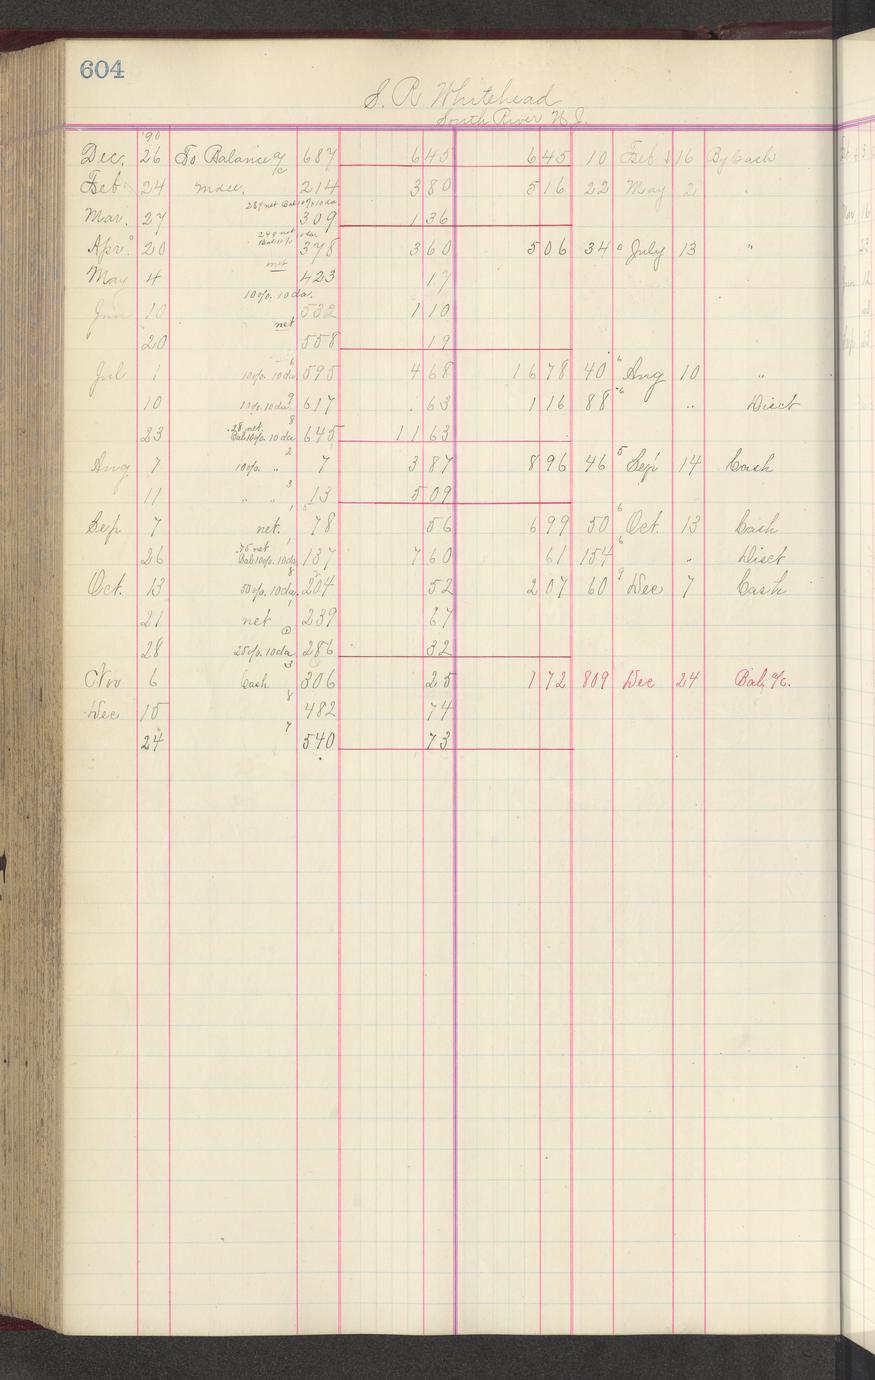 604
S. R. Whitehead
South River N. J.
'90
Dec. 26 To Balance a/c 687 6 45 6 45 10 Feb 16 By Cash
Feb 24 Mdse. 214 3 80 5 16 22 May 2 "
289 net Bal 10% 10 da.
Mar. 27 309 1 36
249 net 10 da.
Bal 10%
Apr. 20 378 3 60 5 06 34 July 13 "
net
May 4 423 17
10%. 10 da.
Jun 10 532 1 10
net
20 558 19
Jul 1 10%. 10 da 595 4 68 16 78 40 Aug 10 "
10 10%. 10 da. 617 . 63 1 16 88 " Disct
.28 net.
23 Bal 10%. 10 da 645 11 63
Aug 7 10%. " 7 3 87 8 96 46 Sep 14 Cash
11 " " 13 5 09
Sep 7 net. 78 56 6 99 50 Oct. 13 Cash
.75 net
26 Bal 10%. 10 da 137 7 60 61 154 " Disct
Oct. 13 50%. 10 da. 204 52 2 07 60 Dec 7 Cash
21 net 239 67
28 25%. 10 da 286 32
Nov 6 Cash 306 25 1 72 809 Dec 24 Bal, a/c.
Dec 15 482 74
24 540 73